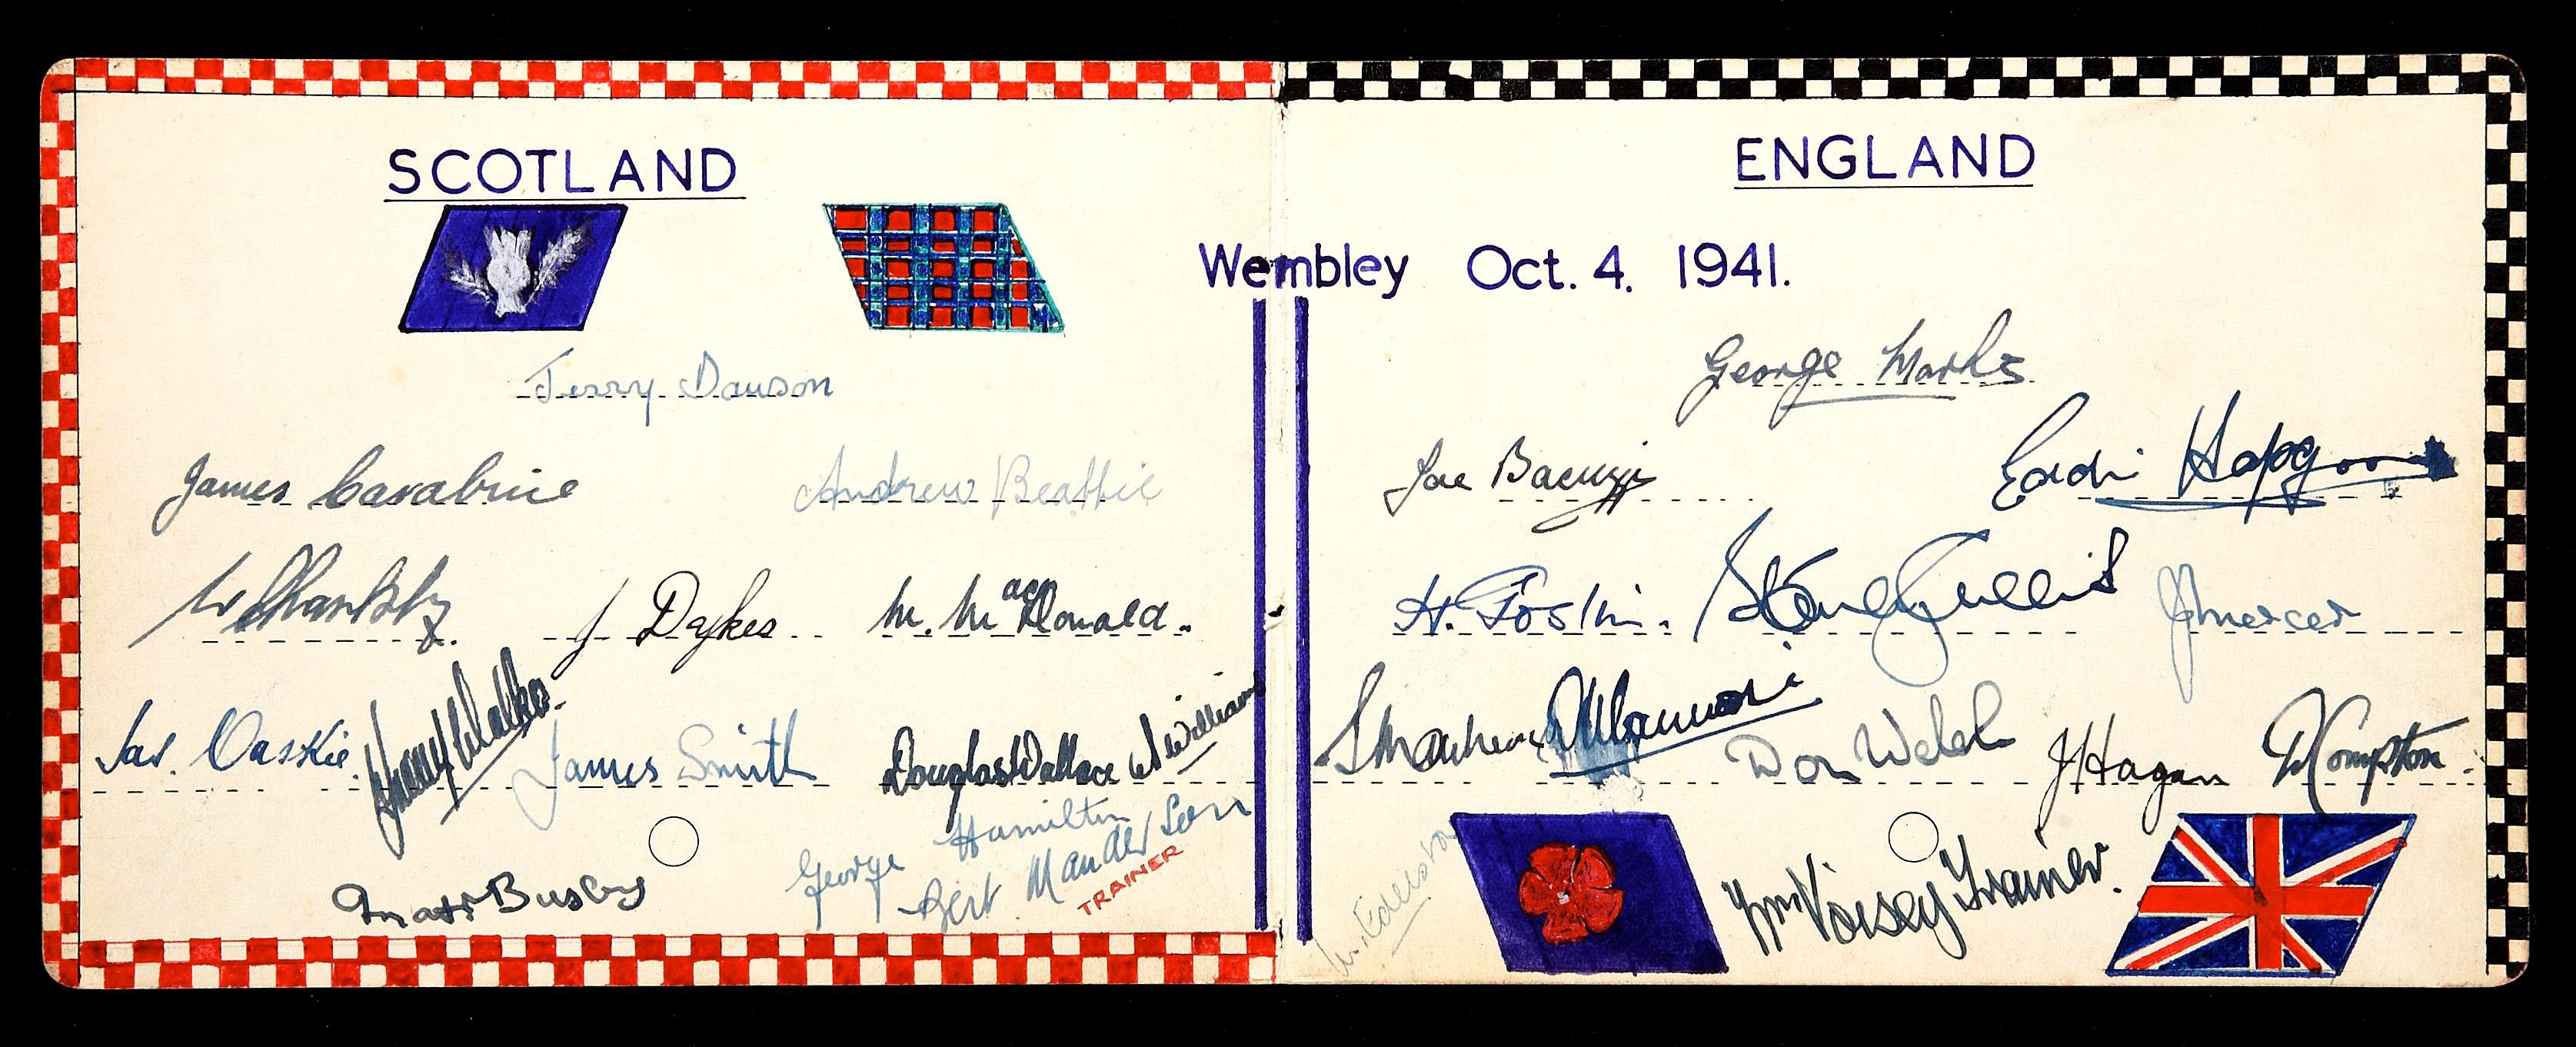 SCOTLAND
Wembley Oct. 4. 1941.
Jerry Dawson
James Carabine
Andrew Beattie
W Shankly
J Dykes
M. MacDonald
Jas. Caskie
Tommy Walker
James Smith
Douglas Wallace
W Williams
George Hamilton
Bert Manderson
TRAINER
Matt Busby
ENGLAND
George Marks
Joe Bacuzzi
Eddie Hapgood
H. Goslin
Stan Cullis
J Mercer
S Matthews
W Mannion
Don Welsh
J Hagan
D Compton
W. Edelston
Wm Voisey Trainer